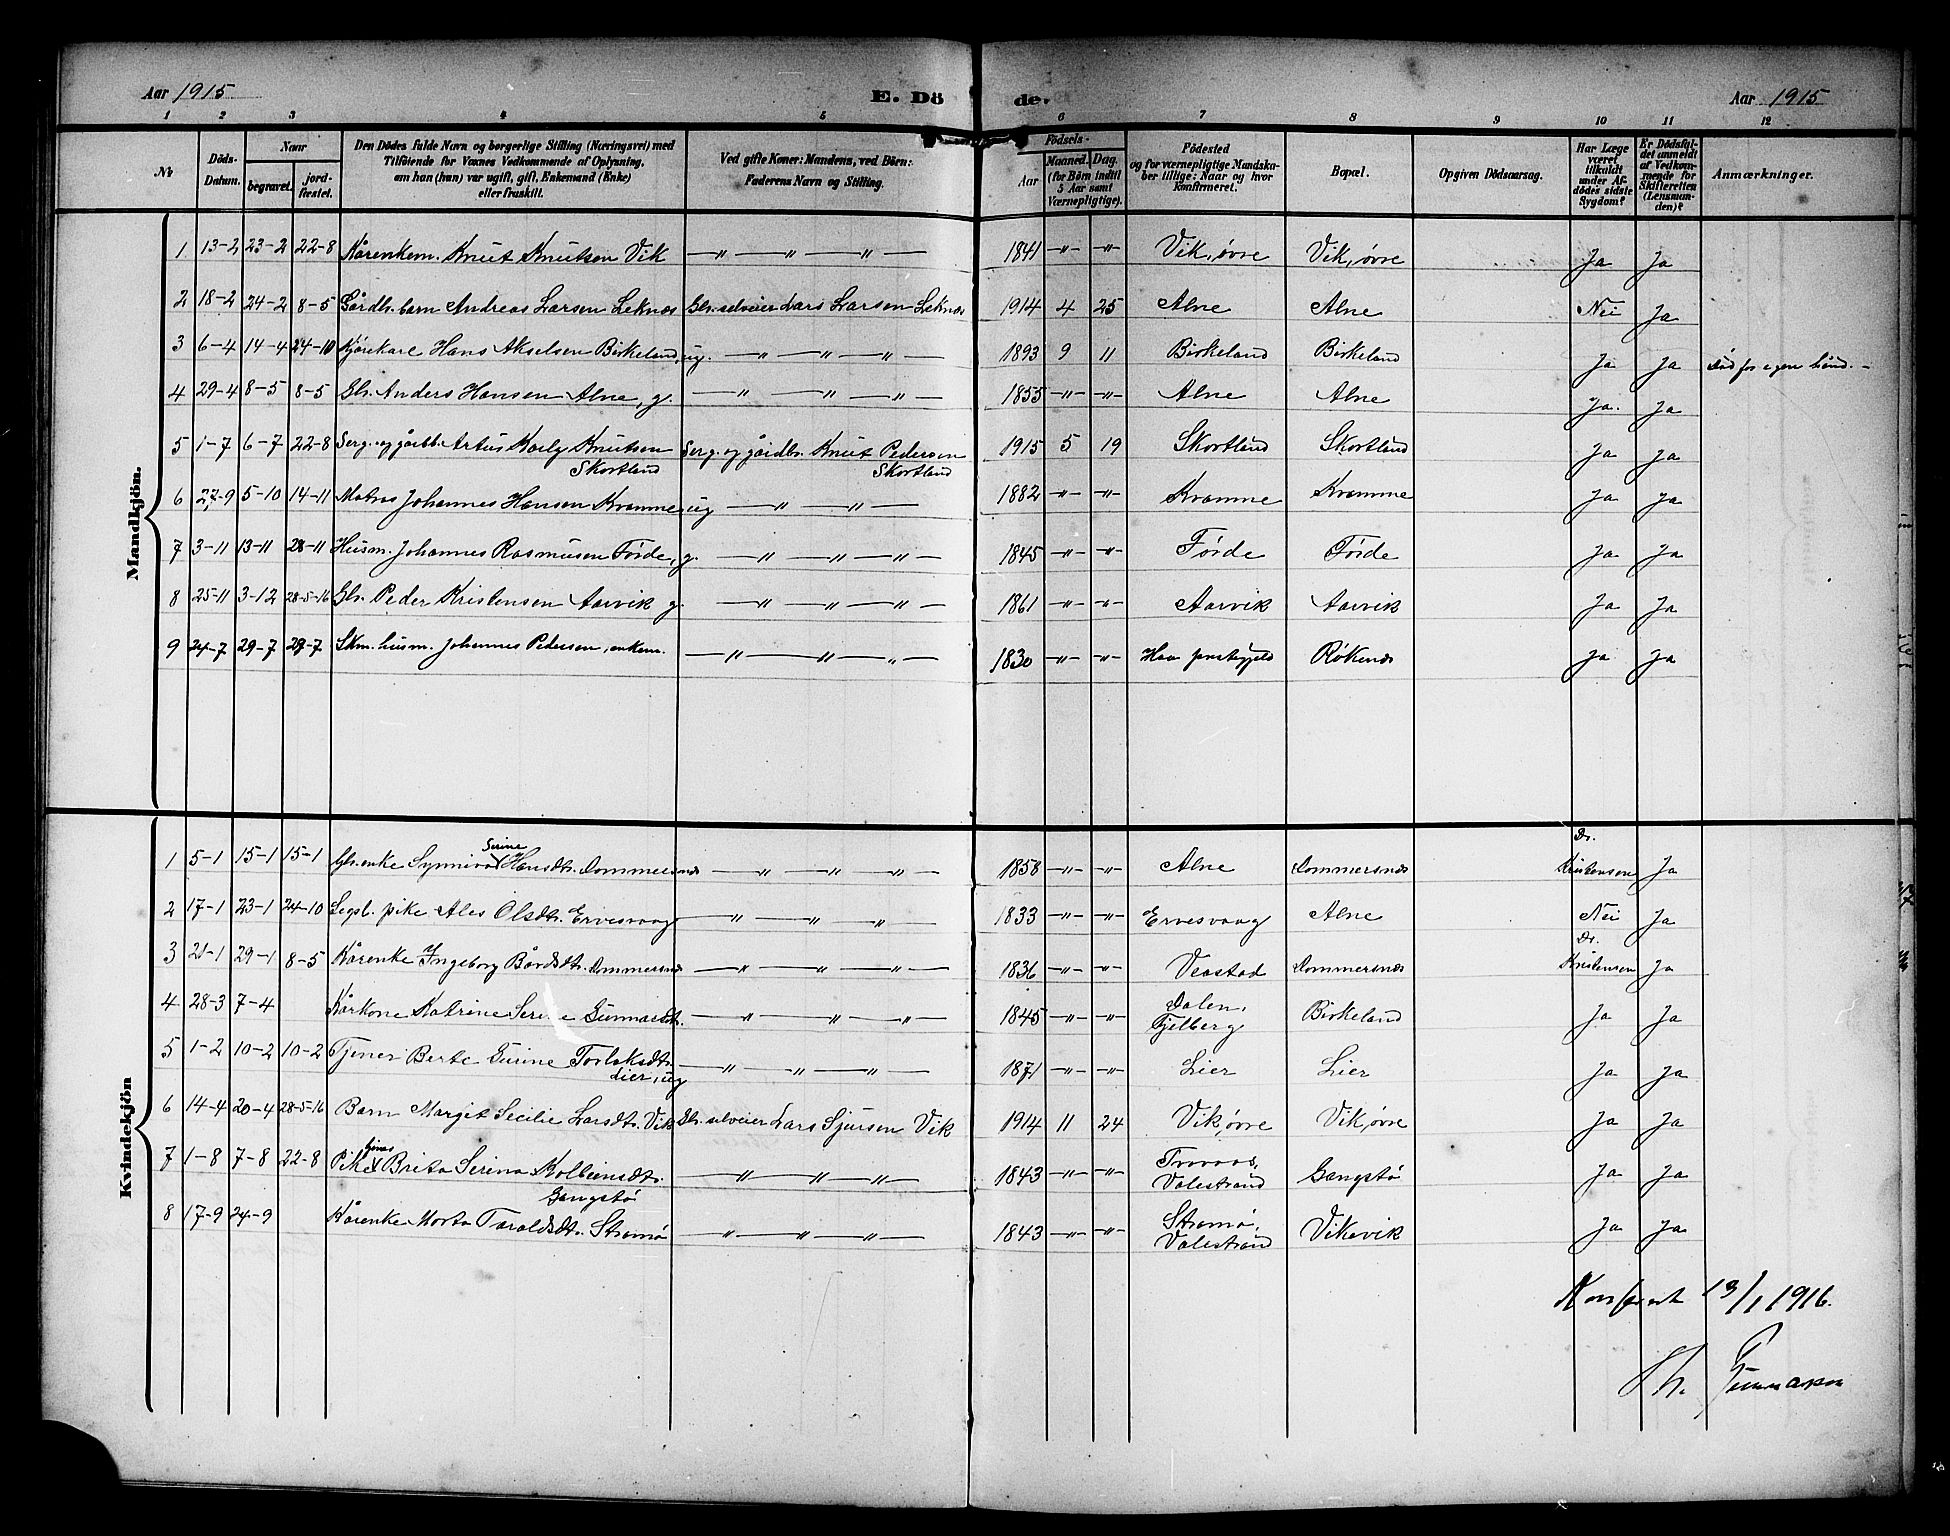 Aar 1915 E. Dö de. Aar 1915
1 2 3 4 5 6 7 8 9 10 11 12
№ Döds-Datum. Naar begravet. jord-fæstet. Den Dödes fulde Navn og borgerlige Stilling (Næringsvei) med Tilföiende for Voxnes Vedkommende af Oplysning, om han (hun) var ugift, gift, Enkemand (Enke) eller fraskilt. Ved gifte Koner: Mandens, ved Börn: Faderens Navn og Stilling. Födsels- Aar Maaned. Dag. (for Börn indtil 5 Aar samt Værnepligtige). Födested og for værnepligtige Mandskaber tillige: Naar og hvor konfirmeret. Bopæl. Opgiven Dödsaarsag. Har Læge været tilkaldt under Afdödes sidste Sygdom? Er Dödsfaldet anmeldt af Vedkommende for Skifteretten (Lensmanden)? Anmærkninger.
Mandkjön.
1 13-2 23-2 22-8 Kårenkem. Knut Knutsen Vik —„—„—„— 1841 -„- -„- Vik, øvre Vik, øvre Ja Ja
2 18-2 24-2 8-5 Gårdbr. barn Andreas Larsen Leknes Gbr. selveier Lars Larsen Leknes 1914 4 25 Alne Alne Nei Ja
3 6-4 14-4 24-10 Kjørekarl Hans Akselsen Birkeland, ug. —„—„—„— 1893 9 11 Birkeland Birkeland Ja Ja Död for egen hånd.
4 29-4 8-5 8-5 Gbr. Anders Hansen Alne, g. —„—„—„— 1855 -„- -„- Alne Alne Ja. Ja
5 1-7 6-7 22-8 Serg. og gårdb. Artus Karly Knutsen Serg. og gårdbr. Knut Pedersen 1915 5 19 Skortland Skortland Ja Ja
Skortland Skortland
6 27-9 5-10 14-11 Matros Johannes Hansen Kvamme, ug —„—„— 1882 -„- -„- Kvamme Kvamme Ja Ja
7 3-11 13-11 28-11 Husm. Johannes Rasmusen Førde, g. —„—„—„— 1845 -„- -„- Førde Førde Ja Ja
8 25-11 3-12 28-5-16 Gbr. Peder Kristensen Aarvik g. —„—„—„— 1861 -„- -„- Aarvik Aarvik Ja Ja
9 24-7 29-7 29-7 Skm. husm. Johannes Pedersen, enkem. —„—„—„— 1830 -„- -„- prestegjeld Røkenes Ja Ja
Kvindekjön
Serine Dr.
1 5-1 15-1 15-1 Gbr.enke Synniva Hansdtr. Dommersnes —„—„—„— 1858 -„- -„- Alne Dommersnes Kristensen Ja
2 17-1 23-1 24-10 Legsl. pike Ales Olsdtr. Ervesvaag —„—„—„— 1833 -„- -„- Ervesvaag Alne Nei Ja
Dr.
3 21-1 29-1 8-5 Kårenke Ingeborg Bårdsdtr. Dommersnes —„—„—„— 1836 -„- -„- Veastad Dommersnes Kristensen Ja
4 28-3 7-4 Kårkone Katrine Serine Gunnarsdtr. —„—„—„— 1845 -„- -„- Dalen, Fjelberg Birkeland Ja Ja
5 1-2 10-2 10-2 Tjener Berte Gurine Torlaksdtr. —„—„—„— 1871 -„- -„- Lier Lier Ja Ja
Lier, ug
6 14-4 20-4 28-5-16 Barn Margit Secilie Larsdtr. Vik Gbr. selveier Lars Sjursen Vik 1914 11 24 Vik, øvre Vik, øvre Ja Ja
7 1-8 7-8 22-8 Pike Brita Serina Kolbeinsdtr. —„—„—„— 1843 -„- -„- Valestrand Gangstø Ja Ja
Gangstø
8 17-9 24-9 Kårenke Marta Taraldsdtr. Strømø —„—„—„— 1843 -„- -„- Strømø, Valestrand Vikevik Ja Ja
Konferert 13/1 1916.
Th. Gunnarson